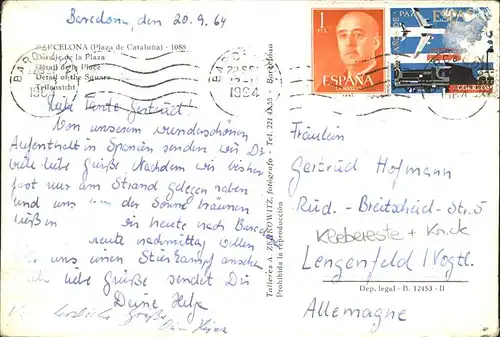 Barcelona, den 20.9.64
BARCELONA (Plaza de Cataluña) - 1088
Detalle de la Plaza
Détail de la Place
Detail of the Square
Teilansicht
Liebe Tante Gertrud!
Von unserem wunderschönen
Aufenthalt in Spanien senden wir Dir
viele liebe Grüße. Nachdem wir bisher
fast nur am Strand gelegen haben
und uns von der Sonne bräunen
ließen wir heute nach Barcel
heute nachmittag wollen
wir uns einen Stierkampf ansehen
liebe Grüße sendet Dir
Deine Helga
herzliche Grüße
Talleres A. ZERKOWITZ, fotógrafo - Tel. 221 43 35 - Barcelona
Prohibida la reproducción
1
PTA
ESPAÑA
PAZ
ESPAÑA
CORREOS
1964
1964
Fräulein
Gertrud Hofmann
Rud.-Breitscheid-Str. 5
Klebereste + Knick
Lengenfeld / Vogtl.
Dep. legal - B. 12453 - II
Allemagne